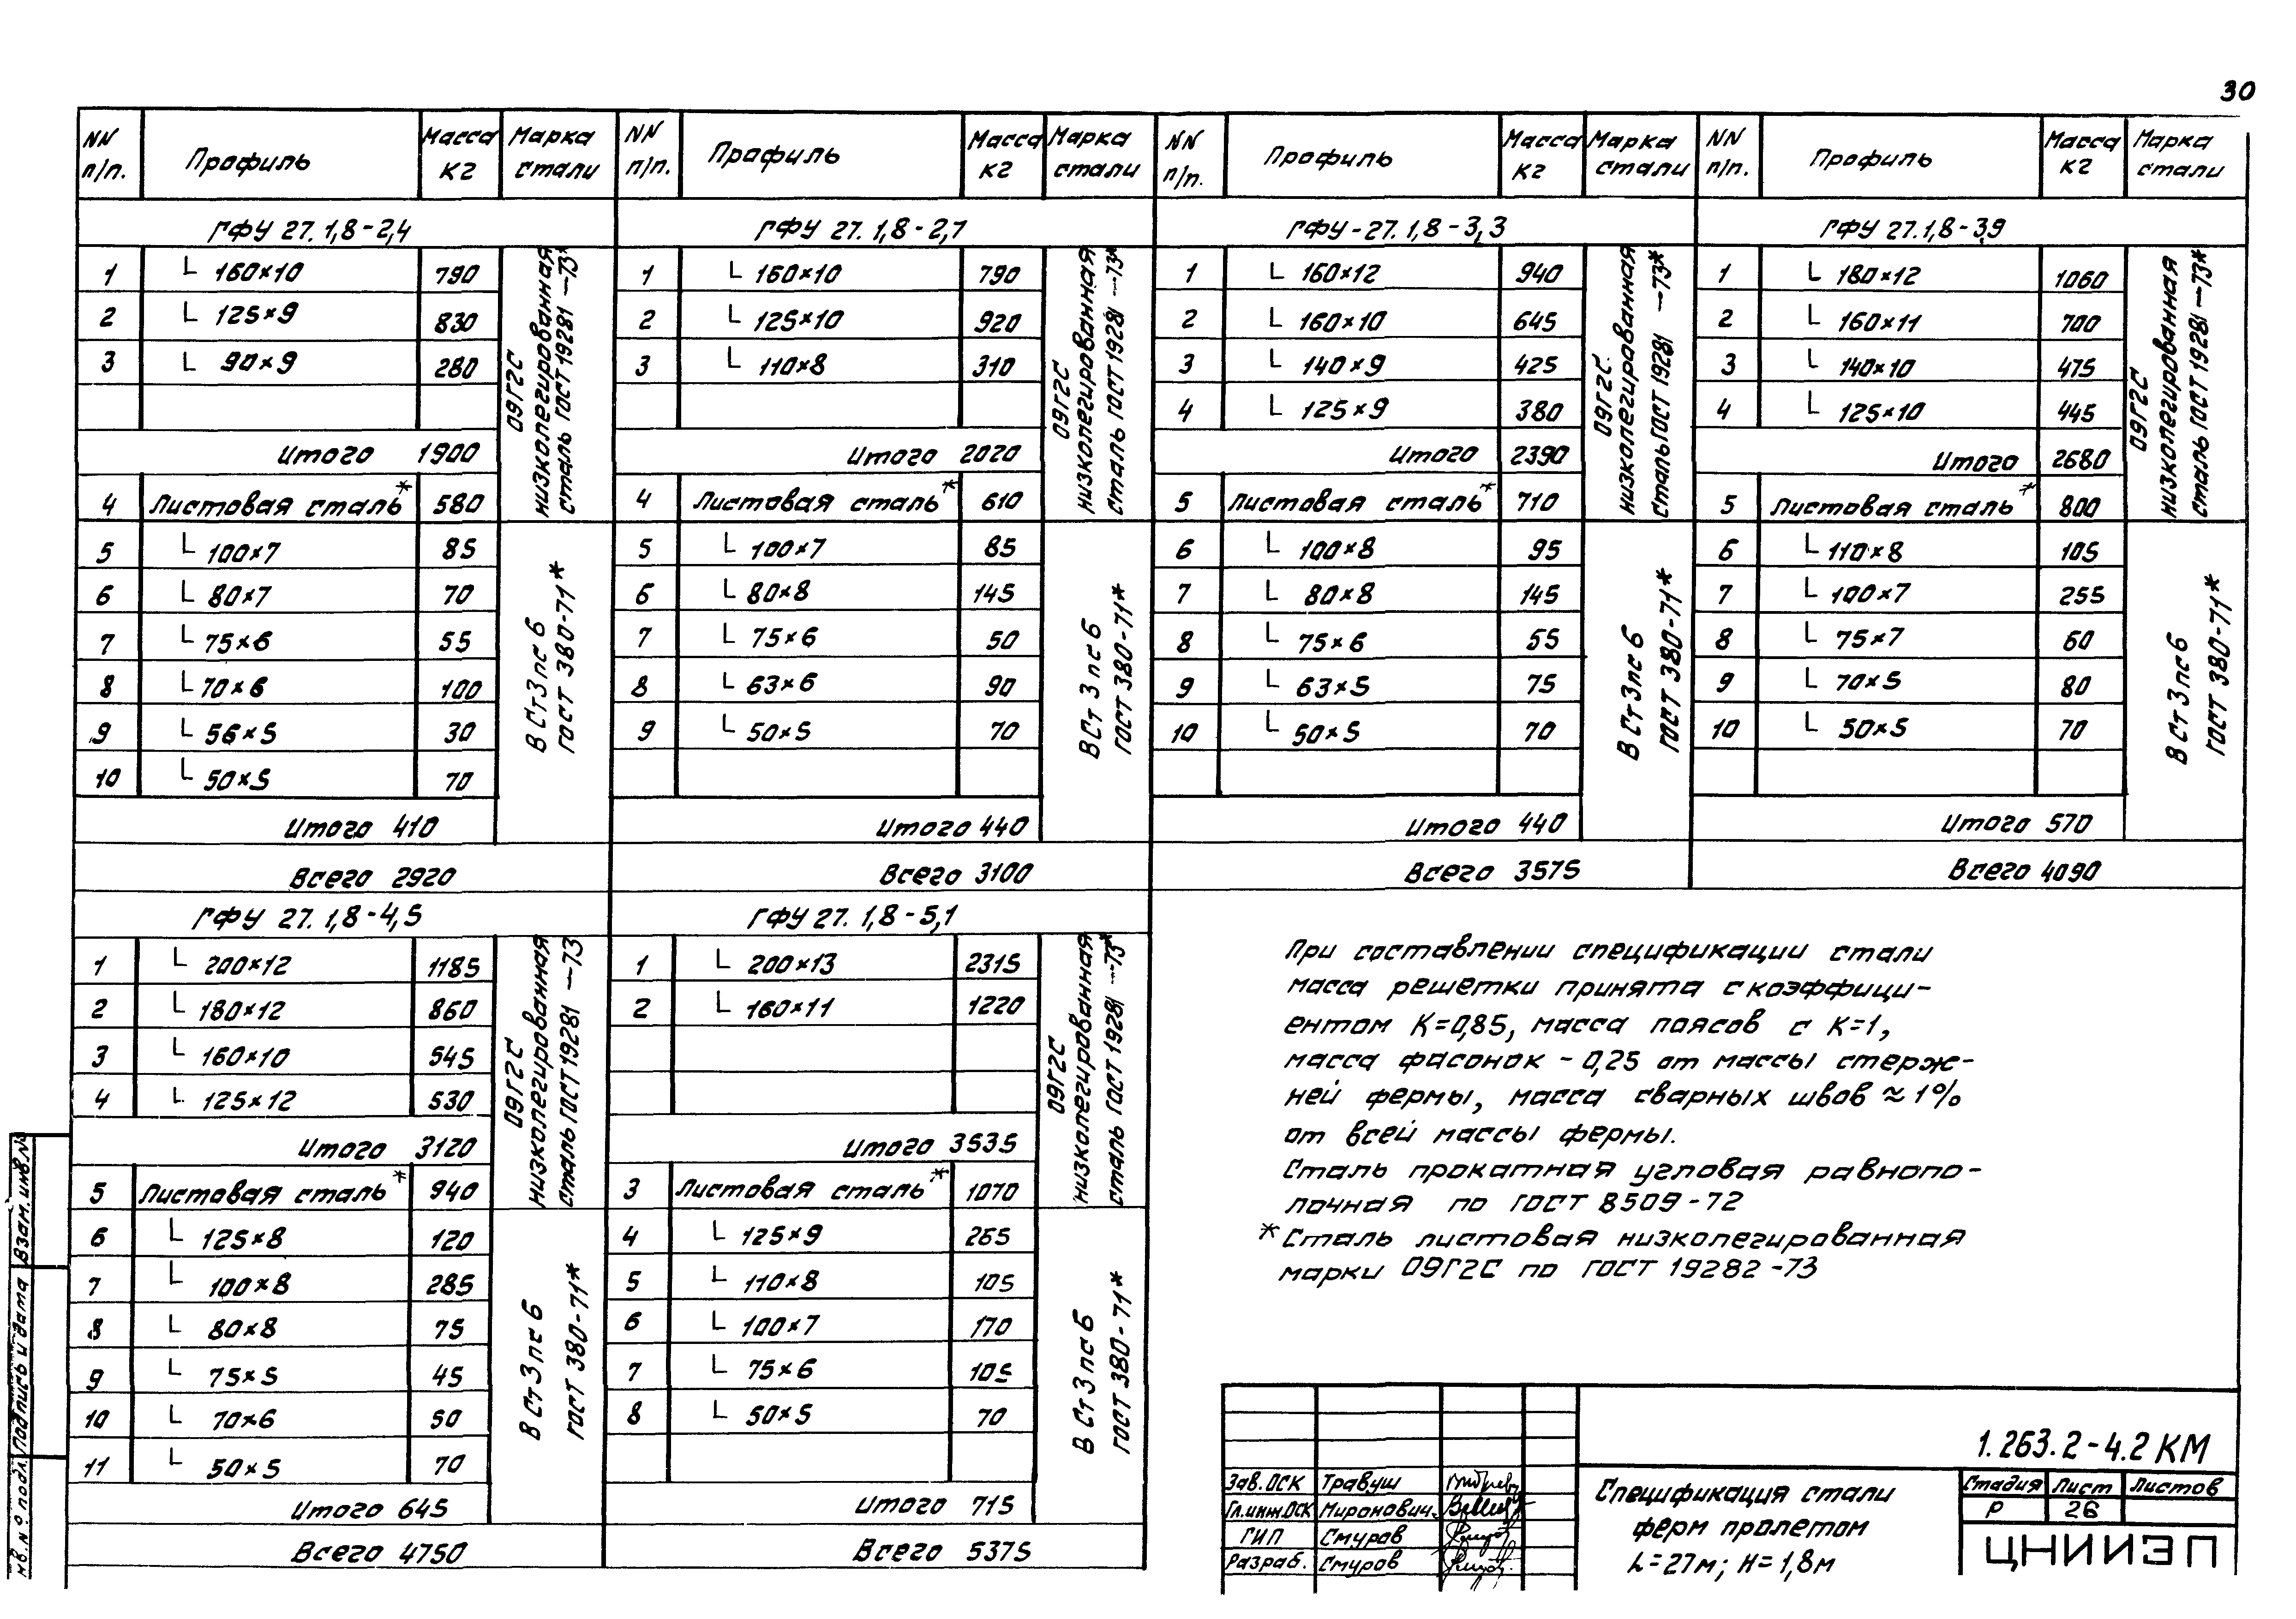 30
NN п/п. Профиль Масса кг Марка стали NN п/п. Профиль Масса кг Марка стали NN п/п. Профиль Масса кг Марка стали NN п/п. Профиль Масса кг Марка стали
ГФУ 27. 1,8-2,4
1 L 160×10 790
2 L 125×9 830
3 L 90×9 280
Итого 1900
4 Листовая сталь* 580
09Г2С
низколегированная
сталь ГОСТ 19281-73*
5 L 100×7 85
6 L 80×7 70
7 L 75×6 55
8 L 70×6 100
9 L 56×5 30
10 L 50×5 70
Итого 410
В Ст3пс6
ГОСТ 380-71*
Всего 2920
ГФУ 27. 1,8-2,7
1 L 160×10 790
2 L 125×10 920
3 L 110×8 310
Итого 2020
4 Листовая сталь* 610
09Г2С
низколегированная
сталь ГОСТ 19281-73*
5 L 100×7 85
6 L 80×8 145
7 L 75×6 50
8 L 63×6 90
9 L 50×5 70
Итого 440
В Ст3пс6
ГОСТ 380-71*
Всего 3100
ГФУ-27. 1,8-3,3
1 L 160×12 940
2 L 160×10 645
3 L 140×9 425
4 L 125×9 380
Итого 2390
5 Листовая сталь* 710
09Г2С.
низколегированная
сталь ГОСТ 19281-73*
6 L 100×8 95
7 L 80×8 145
8 L 75×6 55
9 L 63×5 75
10 L 50×5 70
Итого 440
В Ст3пс6
ГОСТ 380-71*
Всего 3575
ГФУ 27. 1,8-3,9
1 L 180×12 1060
2 L 160×11 700
3 L 140×10 475
4 L 125×10 445
Итого 2680
5 Листовая сталь* 800
09Г2С
низколегированная
сталь ГОСТ 19281-73*
6 L 110×8 105
7 L 100×7 255
8 L 75×7 60
9 L 70×5 80
10 L 50×5 70
Итого 570
В Ст3пс6
ГОСТ 380-71*
Всего 4090
ГФУ 27. 1,8-4,5
1 L 200×12 1185
2 L 180×12 860
3 L 160×10 545
4 L 125×12 530
Итого 3120
5 Листовая сталь* 940
09Г2С
низколегированная
сталь ГОСТ 19281-73
6 L 125×8 120
7 L 100×8 285
8 L 80×8 75
9 L 75×5 45
10 L 70×6 50
11 L 50×5 70
Итого 645
В Ст3пс6
ГОСТ 380-71*
Всего 4750
ГФУ 27. 1,8-5,1
1 L 200×13 2315
2 L 160×11 1220
Итого 3535
3 Листовая сталь* 1070
09Г2С
низколегированная
сталь ГОСТ 19281-73*
4 L 125×9 265
5 L 110×8 105
6 L 100×7 170
7 L 75×6 105
8 L 50×5 70
Итого 715
В Ст3пс6
ГОСТ 380-71*
Всего 5375
При составлении спецификации стали
масса решетки принята с коэффици-
ентом К=0,85, масса поясов с К=1,
масса фасонок - 0,25 от массы стерж-
ней фермы, масса сварных швов ≈ 1%
от всей массы фермы.
Сталь прокатная угловая равнопо-
лочная по ГОСТ 8509-72
* Сталь листовая низколегированная
марки 09Г2С по ГОСТ 19282-73
1.263.2-4.2 КМ
Зав. ОСК Травуш
Гл.инж.ОСК Миронович
ГИП Смуров
Разраб. Смуров
Спецификация стали
ферм пролетом
L=27м; Н=1,8м
Стадия Лист Листов
Р 26
ЦНИИЭП
Взам. инв. №
Подпись и дата
Инв. № подл.